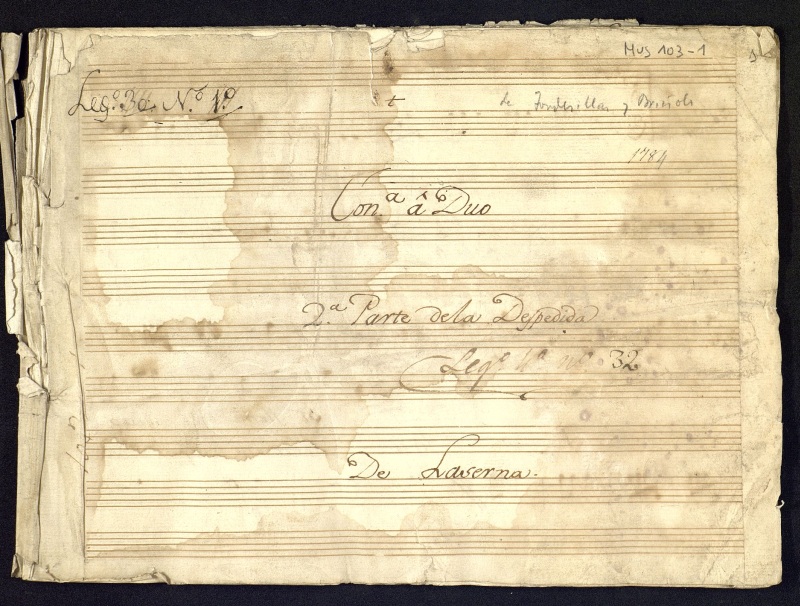 Mus 103-1
Leg.º 36 N.º 1.º
de Tordesillas y Briñoli
1784
Con.ª â Duo
2.ª Parte de la Despedida
Leg.º 4.º nº 32
De Laserna.